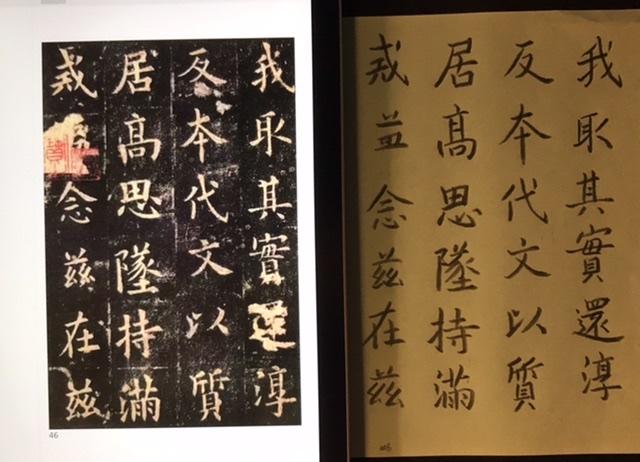 我取其實淳
反本代文以質
居髙思墜持滿
戒念兹在兹
46
我取其實還淳
反本代文以質
居髙思墜持滿
戒益念兹在兹